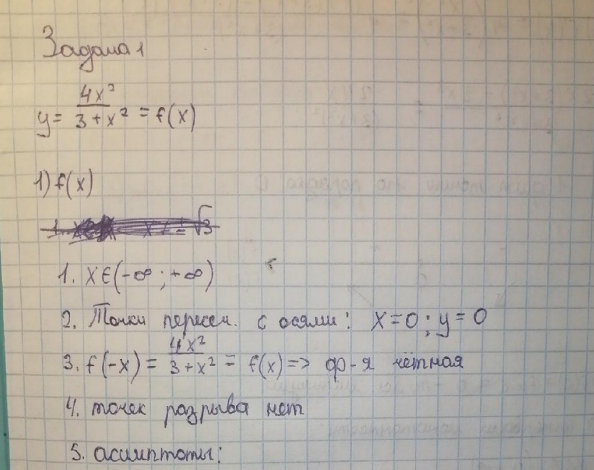 Задача 1
y = 4x²/(3 + x²) = f(x)
1) f(x)
1. x∈(-∞; +∞)
2. Точки пересеч. с осями: x=0; y=0
3. f(-x) = 4x²/(3 + x²) = f(x) => ф-я чётная
4. точек разрыва нет
5. асимптоты: